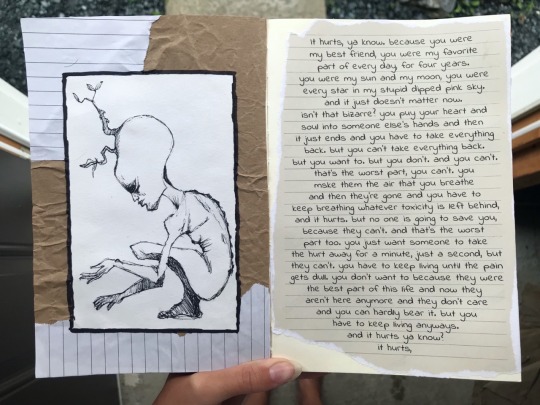 it hurts, ya know. because you were
my best friend, you were my favorite
part of every day, for four years.
you were my sun and my moon, you were
every star in my stupid dipped pink sky.
and it just doesn't matter now.
isn't that bizarre? you puy your heart and
soul into someone else's hands and then
it just ends and you have to take everything
back. but you can't take everything back.
but you want to. but you don't. and you can't.
that's the worst part, you can't. you
make them the air that you breathe
and then they're gone and you have to
keep breathing whatever toxicity is left behind,
and it hurts. but no one is going to save you,
because they can't. and that's the worst
part too. you just want someone to take
the hurt away for a minute, just a second, but
they can't. you have to keep living until the pain
gets dull. you don't want to because they were
the best part of this life and now they
aren't here anymore and they don't care
and you can hardly bear it. but you
have to keep living anyways.
and it hurts ya know?
it hurts,